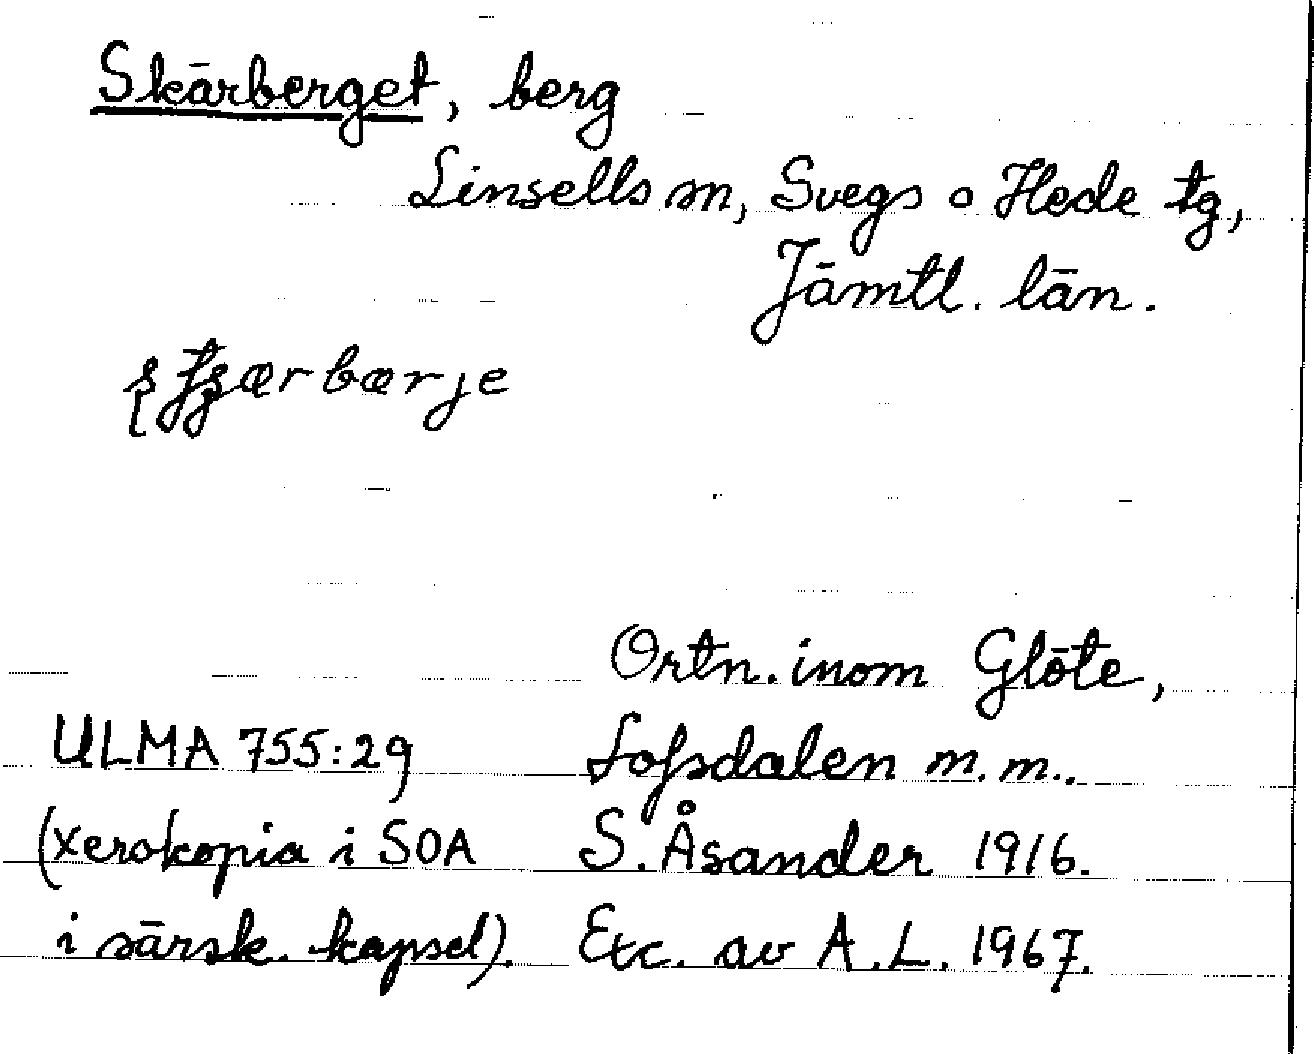 Skärberget, berg
Linsells sn, Svegs o Hede tg,
Jämtl. län.
Ortn. inom Glöte,
ULMA 755:29 Lofsdalen m.m..
(xerokopia i SOA S. Åsander 1916.
i särsk. kapsel). Exc. av A.L. 1967.